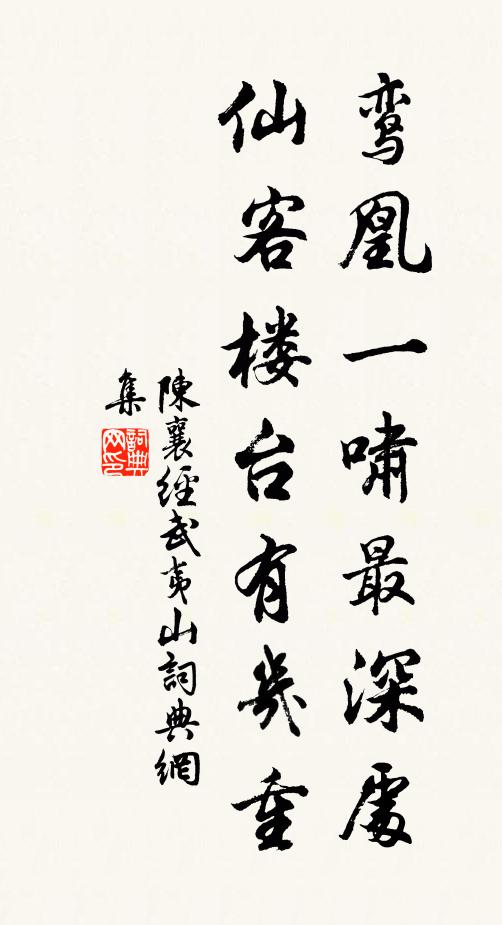 鸾凰一嘯最深處
仙客楼台有幾重
陳襄經武夷山詞典網
集
詞典
网印